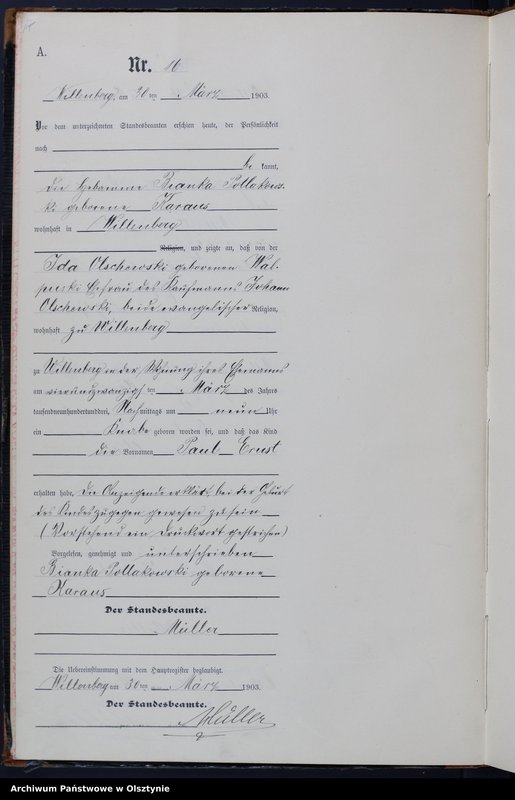 A.
Nr. 16
Willenberg, am 30 ten März 1903.
Vor dem unterzeichneten Standesbeamten erschien heute, der Persönlichkeit
nach
be kannt,
die Hebamme Bianka Pollakows-
ki geborene Karaus
wohnhaft in Willenberg
Religion, und zeigte an, daß von der
Ida Olschewski geborenen Wal-
puski Ehefrau des Kaufmanns Johann
Olschewski, beide evangelischer Religion,
wohnhaft zu Willenberg
zu Willenberg in der Wohnung ihres Ehemannes
am vierundzwanzigsten März des Jahres
tausendneunhundertunddrei, Nachmittags um neun Uhr
ein Knabe geboren worden sei, und daß das Kind
die Vornamen Paul Ernst
erhalten habe. Die Anzeigende erklärt, bei der Geburt
des Kindes zugegen gewesen zu sein
(Vorstehend ein Druckwort gestrichen)
Vorgelesen, genehmigt und unterschrieben
Bianka Pollakowski geborene
Karaus
Der Standesbeamte.
Müller
Die Uebereinstimmung mit dem Hauptregister beglaubigt.
Willenberg am 30 ten März 1903.
Der Standesbeamte.
Müller
Archiwum Państwowe w Olsztynie